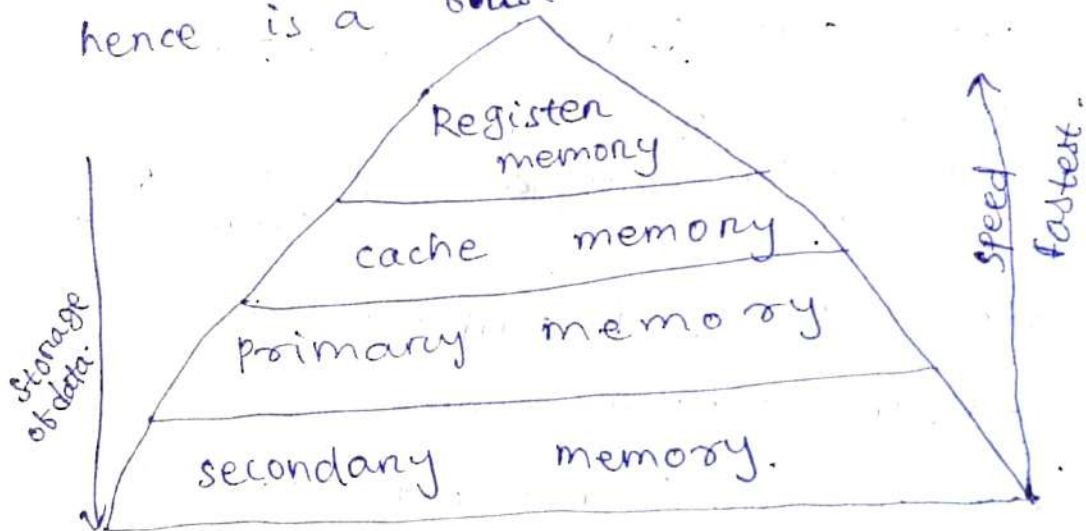 hence is a
Register
memory
cache memory.
primary memory
secondary memory.
Storage
of data.
Speed
fastest.